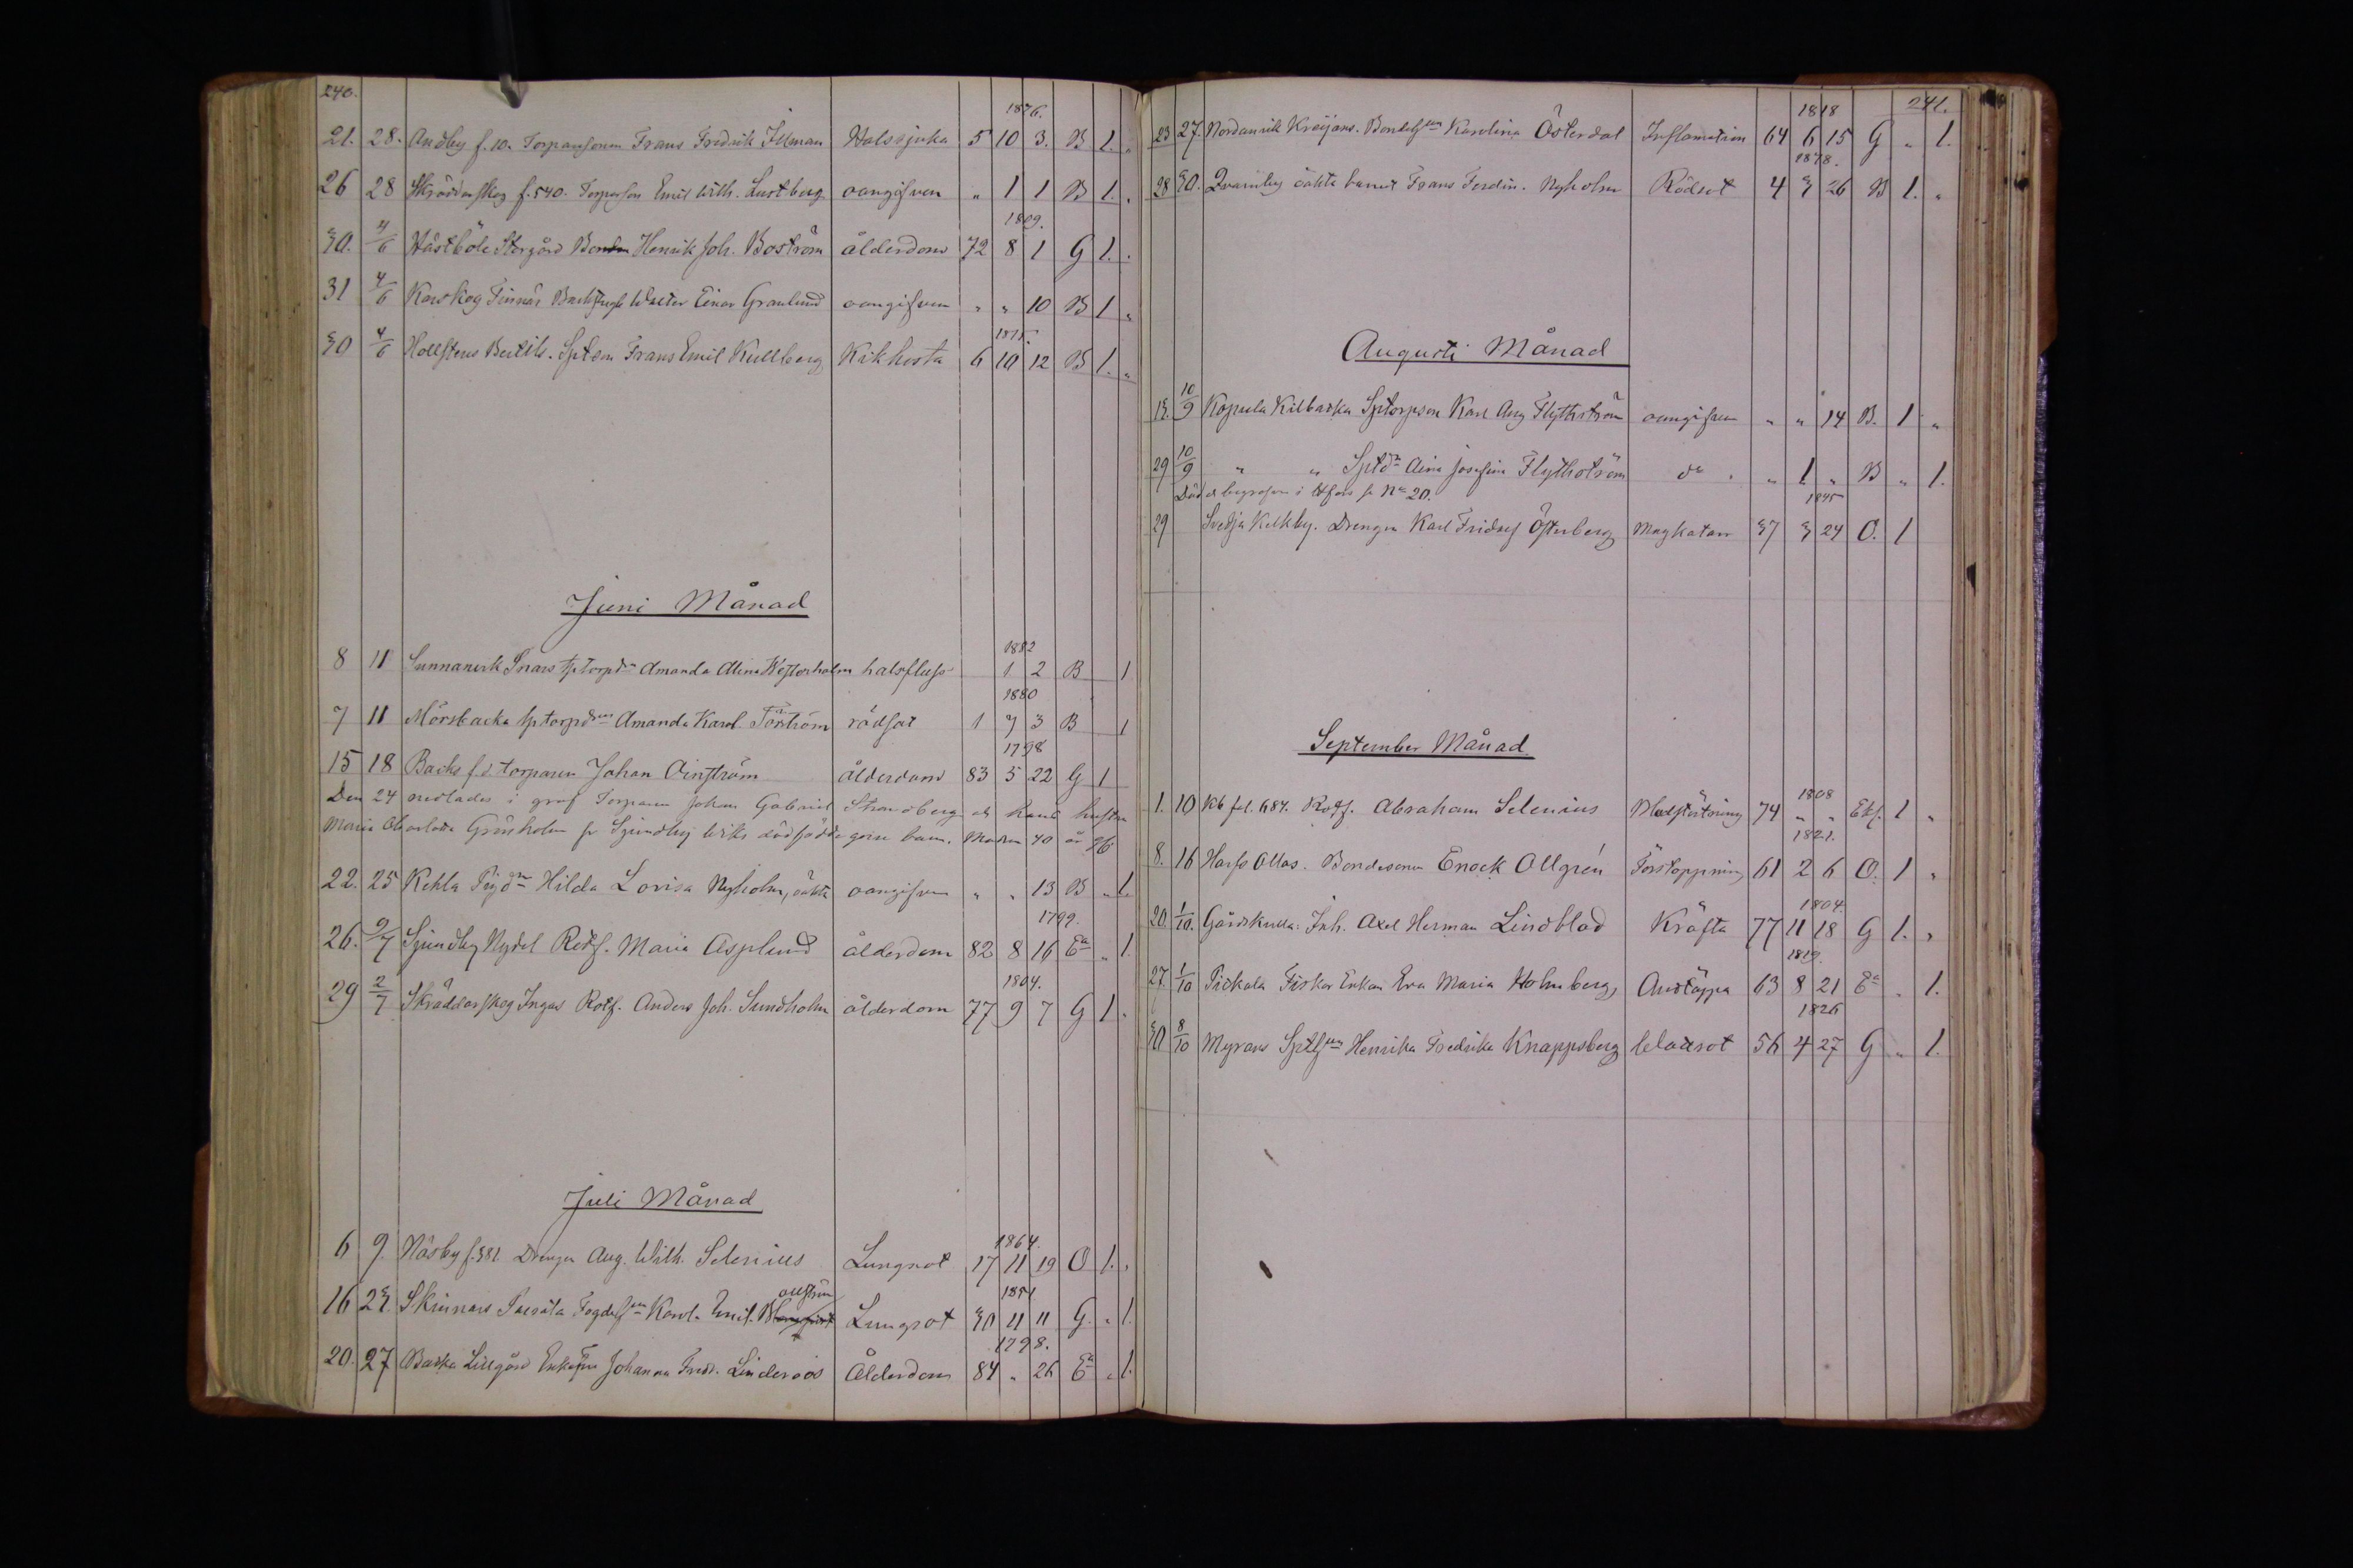 240.
1876.
21. 28. Andby f. 10. Torparsonen Frans Fredrik Illman Halssjuka 5 10 3. B 1. "
26 28 Skräddarskog f. 540. Torparson Emil Wilh. Lustberg oangifven " 1 1 B 1. "
1809.
30. 4/6 Hästböle Storgård Bonden Henrik Joh. Boström ålderdom 72 8 1 G 1. "
31 4/6 Karskog Finnäs Walter Einar Granlund oangifven " " 10 B 1 "
1875.
30 4/6 Bertils. Sptson Frans Emil Kullberg Kikhosta 6 10 12 B 1. "
Juni Månad
1882
8 11 Sunnanvik Snars Sptorpdr Amanda Alina Westerholm halsfluss 1 2 B 1
1880
7 11 Mörsbacka Sptorpdr Amanda Karol. Törström rödsot 1 7 3 B 1
1798
15 18 Backs f.d. torparen Johan Öinström ålderdom 83 5 22 G 1
Den 24 nedlades i graf Torparen Johan Gabriel Strandberg och hans hustru
Maria Charlotta Grönholm fr Sjundby Wiks dödfödda gosse barn. Modren 40 år
22. 25 Kehla Pigdr Hilda Lovisa Nyholm, oäkta oangifven " " 13 B " 1.
1799.
26. 2/7 Sjundby Nydal Rothj. Maria Asplund ålderdom 82 8 16 Ea " 1.
1804.
29 2/7 Skräddarskog Ingas Rothj. Anders Joh. Sundholm ålderdom 77 9 7 G 1 "
Juli Månad
1864.
6 9. Näsby f. 381 Drengen Aug. Wilh. Selenius Lungsot 17 11 19 O 1. "
1851
16 23. Skinnars Fogdehun Karol. Emil. Lungsot 30 11 11 G. " 1.
1798.
20. 27 Backa Lillgård Enkefru Johanna Fred. Linderoos Ålderdom 84 " 26 Ea " 1.
241.
1818
23 27. Nordanvik Kröijans. Bondehun Karolina Österdal Inflamation 64 6 15 G " 1.
1878.
28 30. Qvarnby oäkta barnet Frans Ferdin. Nyholm Rödsot 4 3 26 B 1. "
Augusti Månad
13. 10/9 Kopula Kilbacka Sptorpson Karl Aug Flythström oangifven " " 14 B. 1 "
29 10/9 " " Sptdr Aina Josefina Flythström do " " 1 " B " 1.
Död och begrafven i Hfors fr No 20.
1845
29 Svedja Kelkby. Drengen Karl Fridolf Österberg Magkatarr 37 3 24 O. 1
September Månad
1808
1. 10 Kb fol. 687. Rothj. Abraham Selenius Blodstörtning 74 " " Ekl. 1 "
1821.
8. 16 Harfs Ollas. Bondesonen Enock Ollgrén Förstoppning 61 2 6 O. 1 "
1804.
20. 1/10. Gårdskulla: Inh. Axel Herman Lindblad Kräfta 77 11 18 G 1. "
1819.
27. 1/10 Pickala Fiskar Enkan Eva Maria Holmberg Andtäppa 63 8 21 Ea " 1.
1826
30 8/10 Myrans Spthun Henrika Fredrika Knappsberg Wattusot 56 4 27 G " 1.